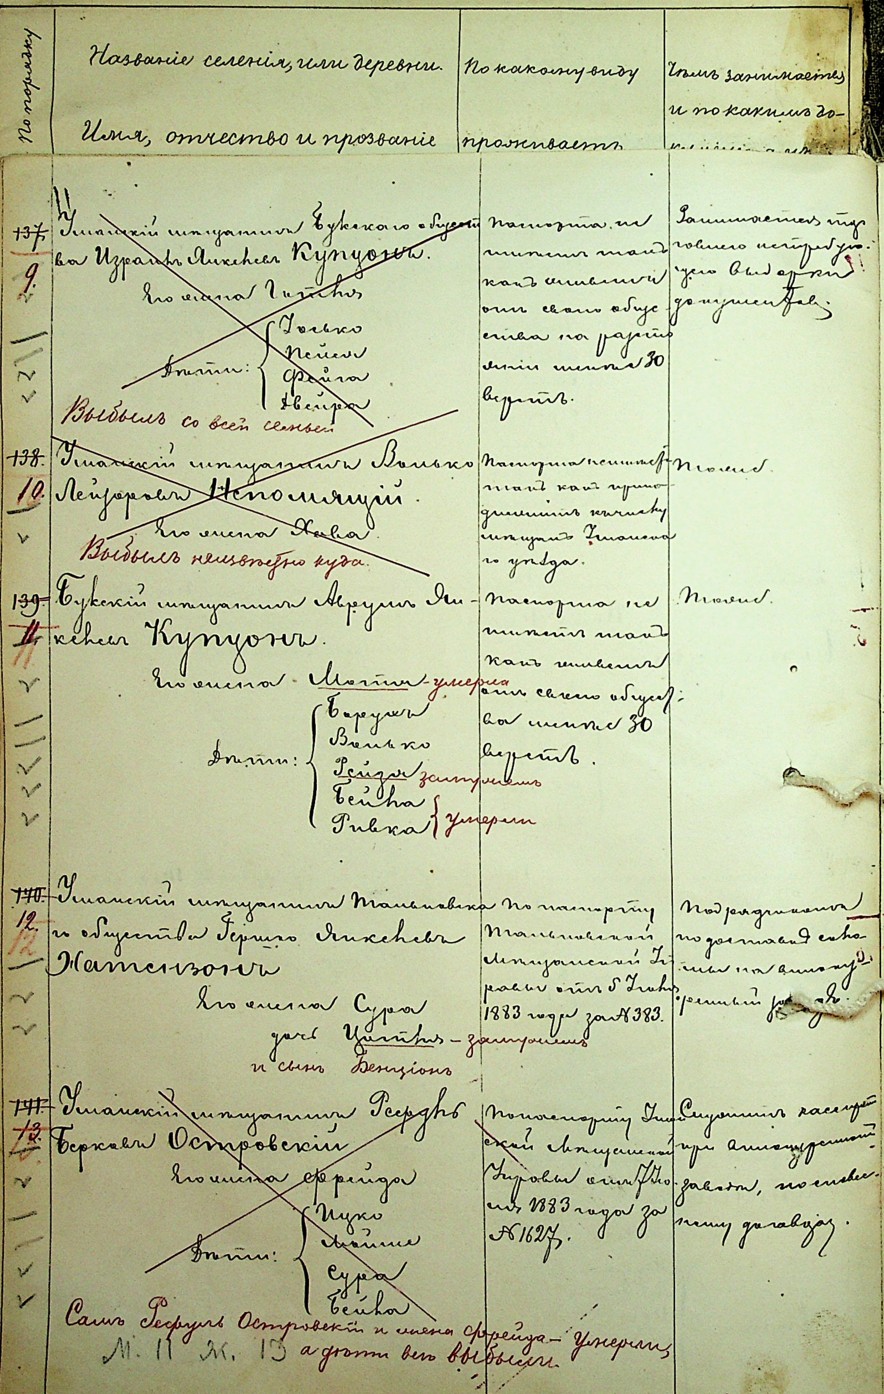 По порядку
Названіе селенія, или деревни.
Имя, отчество и прозваніе
По какому виду
проживаетъ
Чѣмъ занимается
и по какимъ до-
137.
9.
Уманскій мѣщанинъ Букскаго общест
ва Израиль Янкелевъ Купчонъ.
Его жена Гитля
Дѣти:
Іосько
Пейся
Фейга
Двейра
Выбылъ со всей семьей
Паспорта не
имѣетъ такъ
какъ живетъ
отъ своего общес-
ства на разсто
яніи менѣе 30
верстъ.
Занимается тор
говлею
документовъ.
138.
10.
Уманскій мѣщанинъ Волько
Лейзоровъ Непомнящій.
Его жена Хава.
Выбылъ неизвѣстно куда.
Паспорта не имѣетъ
такъ какъ прина-
длежитъ къ числу
мѣщанъ Уманска
го уѣзда.
Тоже.
139.
11.
Букскій мѣщанинъ Аврумъ Ян-
келевъ Купчонъ.
Его жена Мотля - умерла
Дѣти:
Борухъ
Волько
Рейзя замужемъ
Бейла
Ривка
умерли
Паспорта не
имѣетъ такъ
какъ живетъ
отъ своего общест-
ва менѣе 30
верстъ.
Тоже.
140.
12.
12
Уманскій мѣщанинъ Тальновска
го общества Гершко Янкелевъ
Натензонъ
Его жена Сура
дочь Цотля - замужемъ
и сынъ Бенціонъ
По паспорту
Тальновской
Мѣщанской Уп
равы отъ 5 Іюля
1883 года за № 383.
Подрядчикъ
по доставкѣ
141.
13.
Уманскій мѣщанинъ
Берковъ Островскій
Его жена Фрейда
Дѣти:
Ицко
Мойше
Сура
Бейла
Самъ Рефулъ Островскій и жена Фрейда - умерли,
а дѣти всѣ выбыли.
М. 11 Ж. 13
По паспорту Уман
ской Мѣщанской
Управы отъ 7 Ію-
ля 1883 года за
№ 1627.
Служитъ
при винокуренномъ
заводѣ, по словес-
ному договору.